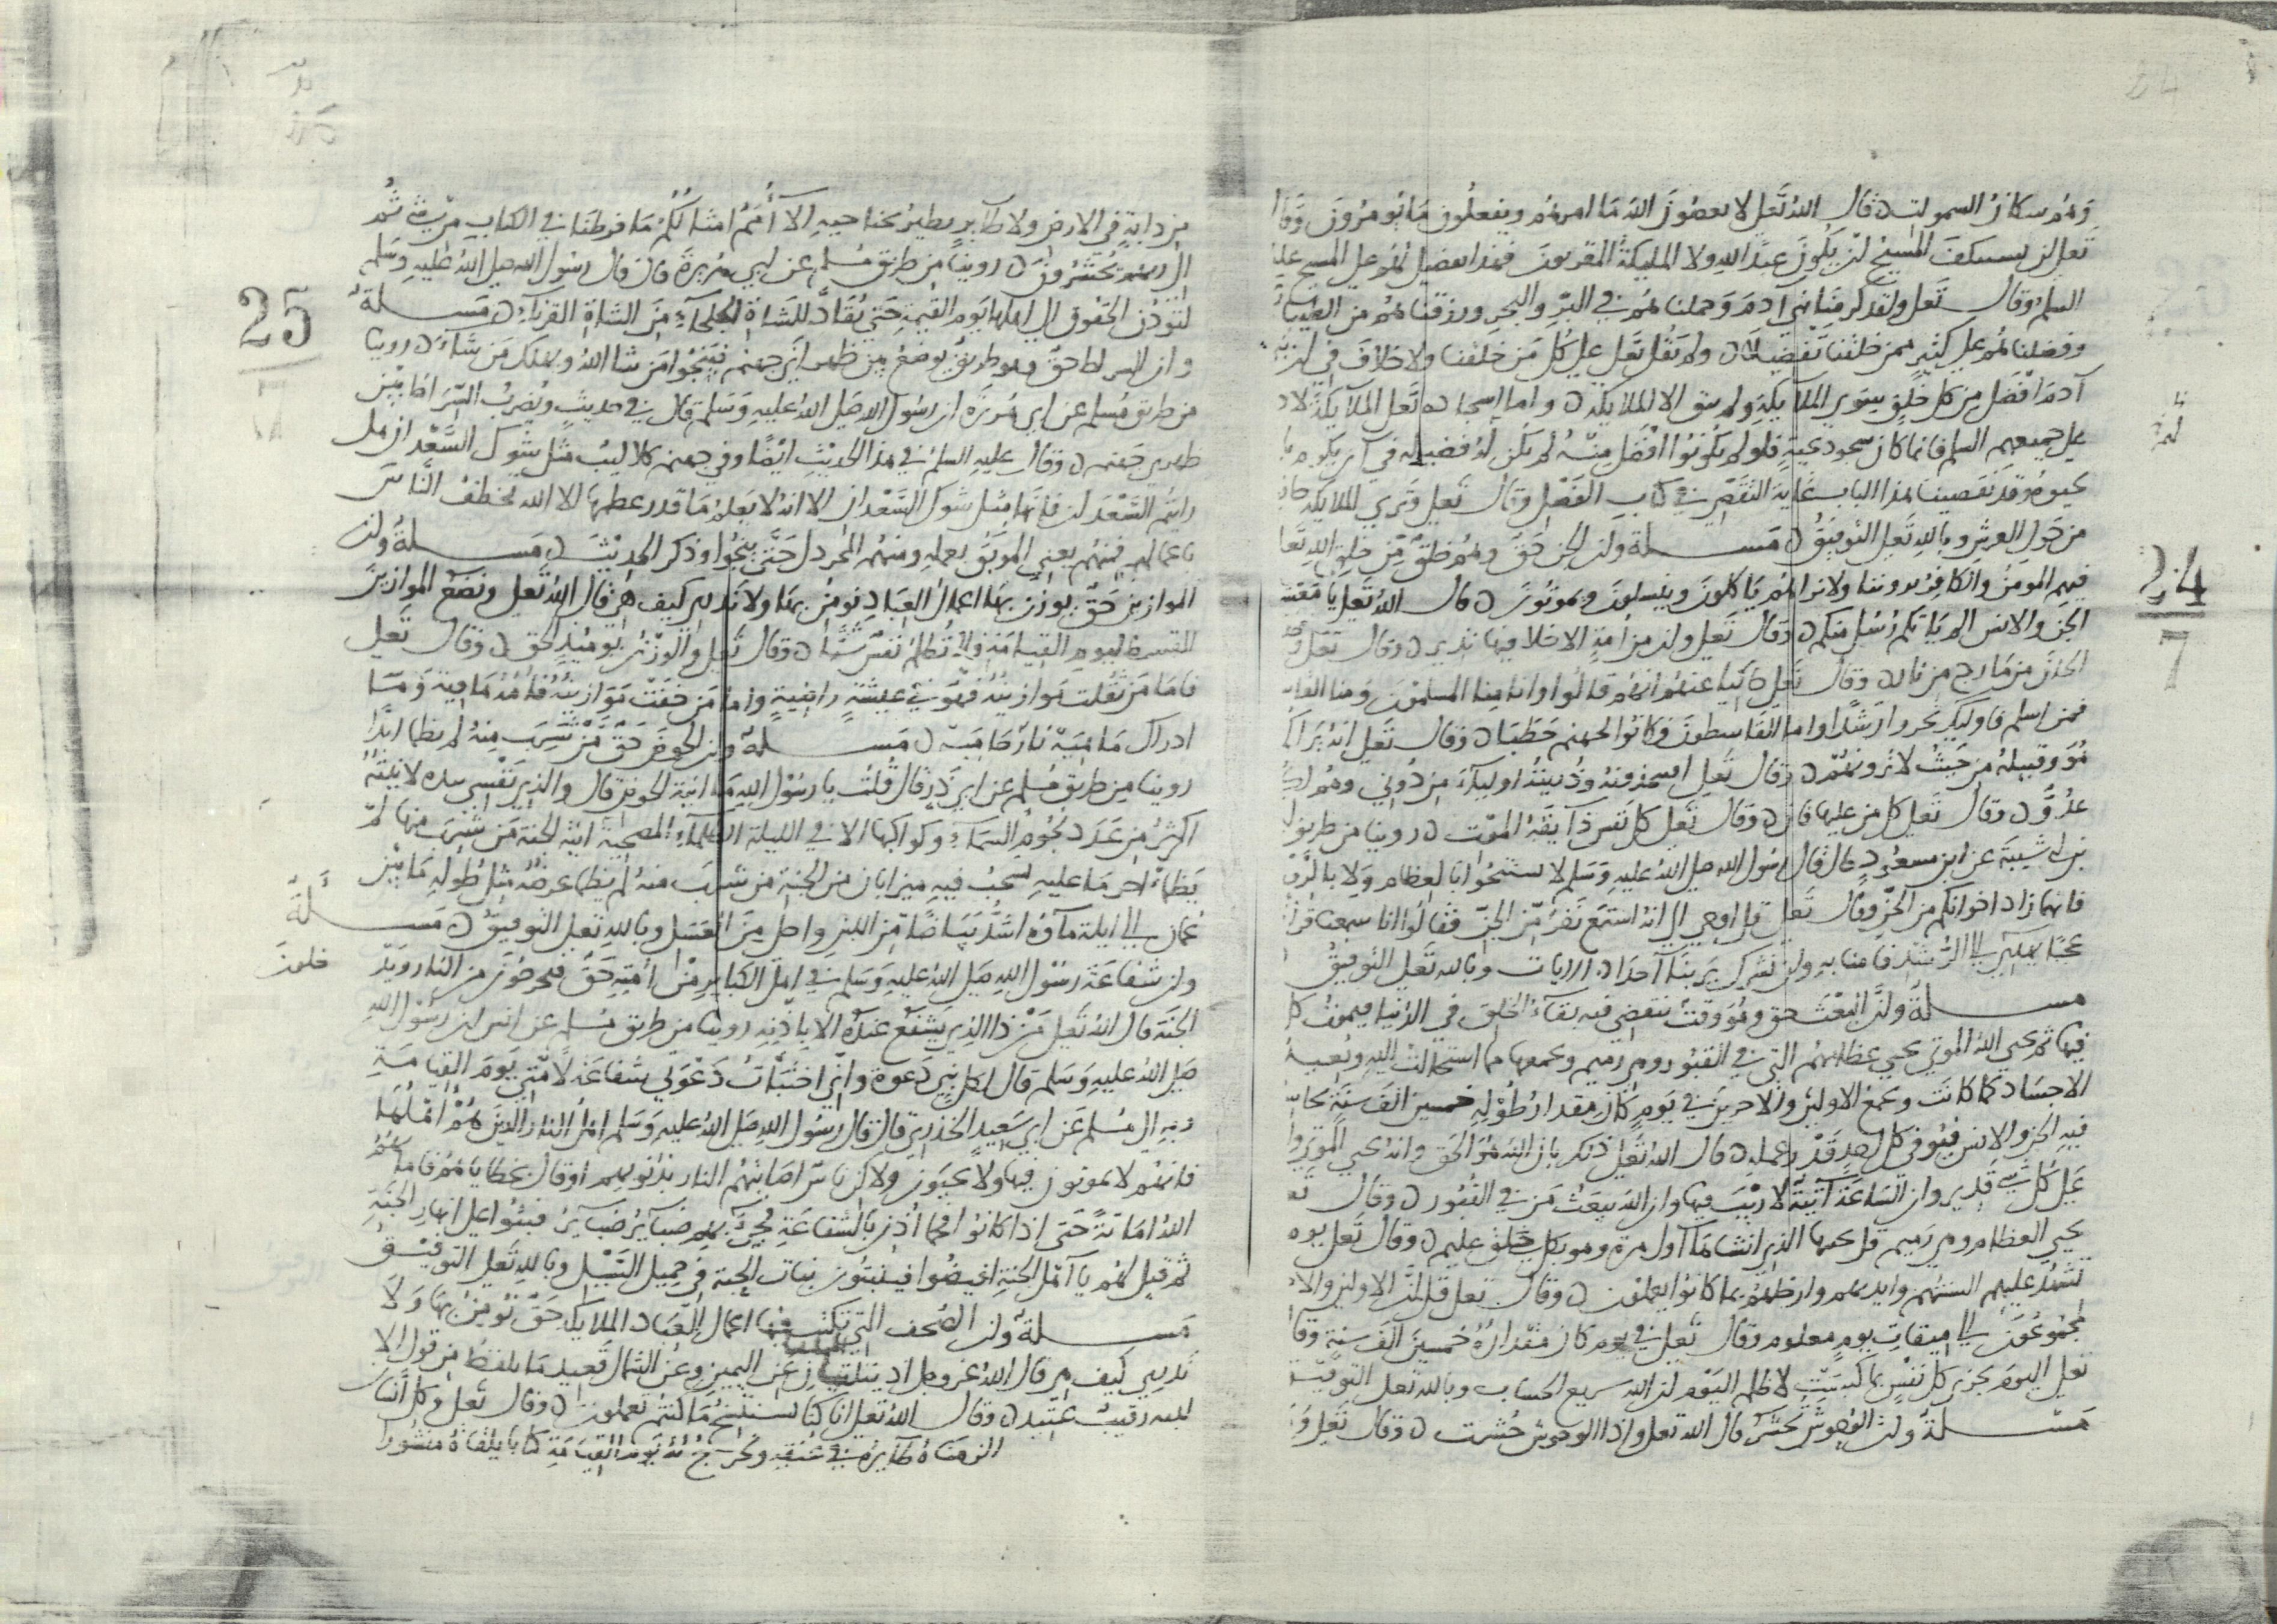 وهم سكان السموات قال الله تعلى لا يعصون الله ما امرهم ويفعلون ما يومرون وقا
تعلى لن يستنكف المسيح ان يكون عبدا لله ولا المليكة المقربون فهذا تفضيل لهم على المسيح عليه
السلم وقال تعلى ولقد كرمنا بني ادم وحملناهم في البر والبحر ورزقناهم من الطيبات
وفضلناهم على كثير ممن خلقنا تفضيلا ولم يقل تعلى على كل من خلقنا ولا خلاف في ان بني
آدم افضل من كل خلق سوى الملايكة ولم يبق الا الملايكة واما اسجاده تعلى الملآيكة لاد
على جميعهم السلم فانما كان سجود تحية فلو لم يكونوا افضل منه لم يكن له فضيلة في ان يكرم با
تحيوه وقد تقصينا هذا الباب غاية التقصي في كتاب الفصل وقال تعلى وترى الملايكة حاف
من حول العرش وبالله تعلى التوفيق مسلة وان الجن حق وهم خلق من خلق الله تعا
فيهم المومن والكافر يروننا ولا نراهم ياكلون وينسلون ويموتون قال الله تعلى يا معشر
الجن والانس الم ياتكم رسل منكم وقال تعلى وان من امة الا خلا فيها نذير وقال تعلى و
الجان من مارج من نار وقال تعلى حاكيا عنهم انهم قالوا وانا منا المسلمون ومنا القاس
فمن اسلم فاوليك تحروا رشدا واما القاسطون فكانوا لجهنم حطبا وقال تعلى انه يراكم
هو وقبيله من حيث لا ترونهم وقال تعلى افتتخذونه وذريته اوليآء من دوني وهم لكم
عدو وقال تعلى كل من عليها فان وقال تعلى كل نفس ذآيقة الموت روينا من طريق ا
بن ابي شيبة عن ابن مسعود قال قال رسول الله صلى الله عليه وسلم لا تستنجوا بالعظام ولا بالروث
فانهما زاد اخوانكم من الجن وقال تعلى قل اوحي الي انه استمع نفر من الجن فقالوا انا سمعنا قرانا
عجبا يهدي الى الرشد فامنا به ولن نشرك بربنا آحدا الايات وبالله تعلى التوفيق
مسلة وان البعث حق وهو وقت ينقضي فيه بقاء الخلق في الدنيا فيموت كل
فيها ثم يحيي الله الموتى يحيي عظامهم التي في القبور وهي رميم ويجمعها ما استحالت اليه ويعيد
الاجساد كما كانت ويجمع الاولين والاخرين في يوم كان مقدار طوله خمسين الف سنة يحاسب
فيه الجن والانس فيوفى كل احد قدر عمله قال الله تعلى ذلك بان الله هو الحق وانه يحيي الموتى وا
على كل شي قدير وان الساعة آتية لا ريب فيها وان الله يبعث من في القبور وقال تع
يحيي العظام وهي رميم قل يحييها الذي انشاها اول مرة وهو بكل خلق عليم وقال تعلى يوم
تشهد عليهم السنتهم وايديهم وارجلهم بما كانوا يعملون وقال تعلى قل ان الاولين والاخ
لمجموعون الى ميقات يوم معلوم وقال تعلى في يوم كان مقداره خمسين الف سنة وقال
تعلى اليوم تجزى كل نفس بما كسبت لا ظلم اليوم ان الله سريع الحساب وبالله تعلى التوفيق
مسلة وان الوحوش تحشر قال الله تعلى واذا الوحوش حشرت وقال تعلى وما
24
7
24
من دابة في الارض ولا طآير يطير بجناحيه الآ أمم امثالكم ما فرطنا في الكتاب من شي ثم
الى ربهم يحشرون روينا من طريق مسلم عن ابي هريرة قال قال رسول الله صلى الله عليه وسلم
لتودن الحقوق الى اهلها يوم القيمة حتى يقاد للشاة الجلحآء من الشاة القرنآء مسلة
وان الصراط حق وهو طريق يوضع بين ظهراني جهنم فينجوا من شا الله ويهلك من شآء روينا
من طريق مسلم عن ابي هريرة ان رسول الله صلى الله عليه وسلم قال في حديث ويضرب الصراط بين
ظهري جهنم وقال عليه السلم في هذا الحديث ايضا وفي جهنم كلاليب مثل شوك السعدان هل
رايتم السعدان فانها مثل شوك السعدان الا انه لا يعلم ما قدر عظمها الا الله تخطف الناس
باعمالهم فمنهم يعني الموبق بعمله ومنهم المخردل حتى ينجوا وذكر الحديث مسلة وان
الموازين حق يوزن بها اعمال العباد نومن بها ولا ندري كيف هي قال الله تعلى ونضع الموازين
القسط ليوم القيامة فلا تظلم نفس شيا وقال تعلى والوزن يوميذ الحق وقال تعلى
فاما من ثقلت موازينه فهو في عيشة راضية واما من خفت موازينه فامه هاوية وما
ادراك ما هيه نار حامية مسلة وان الحوض حق من شرب منه لم يظما ابدا
روينا من طريق مسلم عن ابي ذر قال قلت يا رسول الله ما انية الحوض قال والذي نفسي بيده لانيته
اكثر من عدد نجوم السمآء وكواكبها الا في الليلة المظلمآء المصحية انية الجنة من شرب منها لم
يظما اخر ما عليه يشخب فيه ميزابان من الجنة من شرب منه لم يظما عرضه مثل طوله ما بين
عمان الى ايلة مآوه اشد بياضا من اللبن واحلى من العسل وبالله تعلى التوفيق مسلة
وان شفاعة رسول الله صلى الله عليه وسلم في اهل الكباير من أمته حق فيخرجون من النار ويد
خلون
الجنة قال الله تعلى من ذا الذي يشفع عنده الا باذنه روينا من طريق مسلم عن انس ان رسول الله
صلى الله عليه وسلم قال لكل نبي دعوة واني اختبات دعوتي شفاعة لامتي يوم القيامة
وبه الى مسلم عن ابي سعيد الخدري قال قال رسول الله صلى الله عليه وسلم اهل النار الذين هم اهلها
فانهم لا يموتون فيها ولا يحيون ولاكن ناس اصابتهم النار بذنوبهم او قال بخطاياهم فاماتهم
الله اماتة حتى اذا كانوا فحما أذن بالشفاعة فجيء بهم ضبآير ضبآير فبثوا على انهار الجنة
ثم قيل لهم يا آهل الجنة افيضوا فينبتون نبات الحبة في حميل السيل وبالله تعلى التوفيق
مسلة وان الصحف التي تكتب فيها اعمال العباد الملايكة حق نومن بها ولا
ندري كيف هي قال الله عز وجل اذ يتلقى المتلقيان عن اليمين وعن الشمال قعيد ما يلفظ من قول الا
لديه رقيب عتيد وقال الله تعلى انا كنا نستنسخ ما كنتم تعملون وقال تعلى وكل انسان
الزمناه طآيره في عنقه ونخرج له يوم القيامة كتابا يلقاه منشورا
25